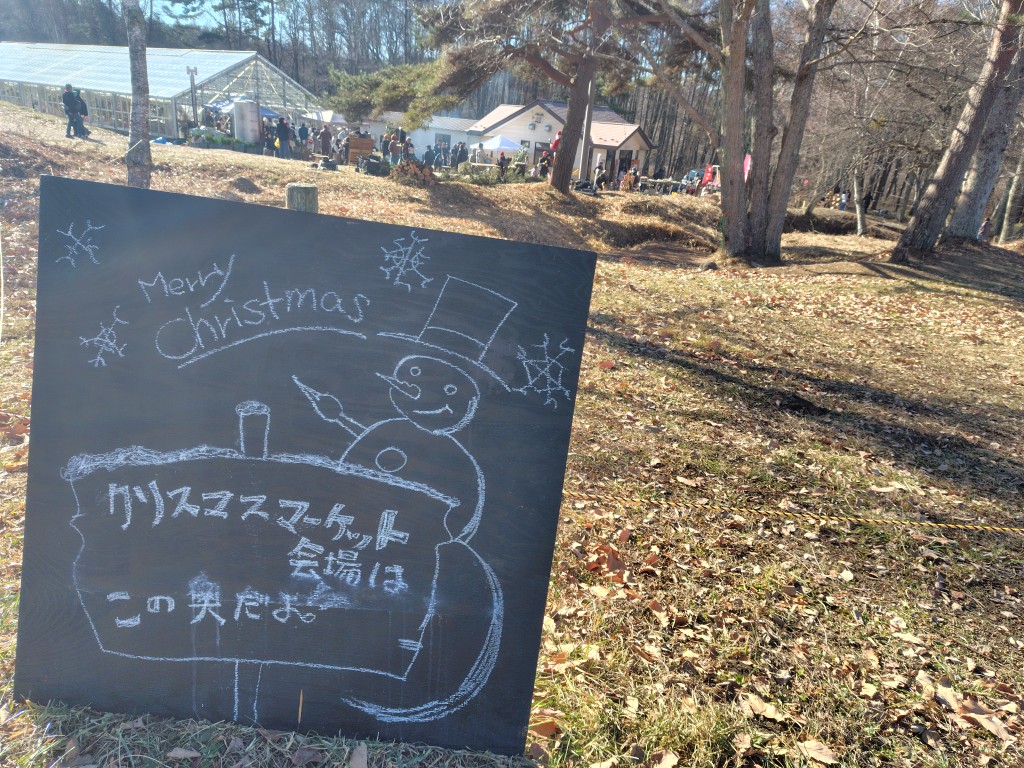 Merry
Christmas
クリスマスマーケット
会場は
この奥だよ